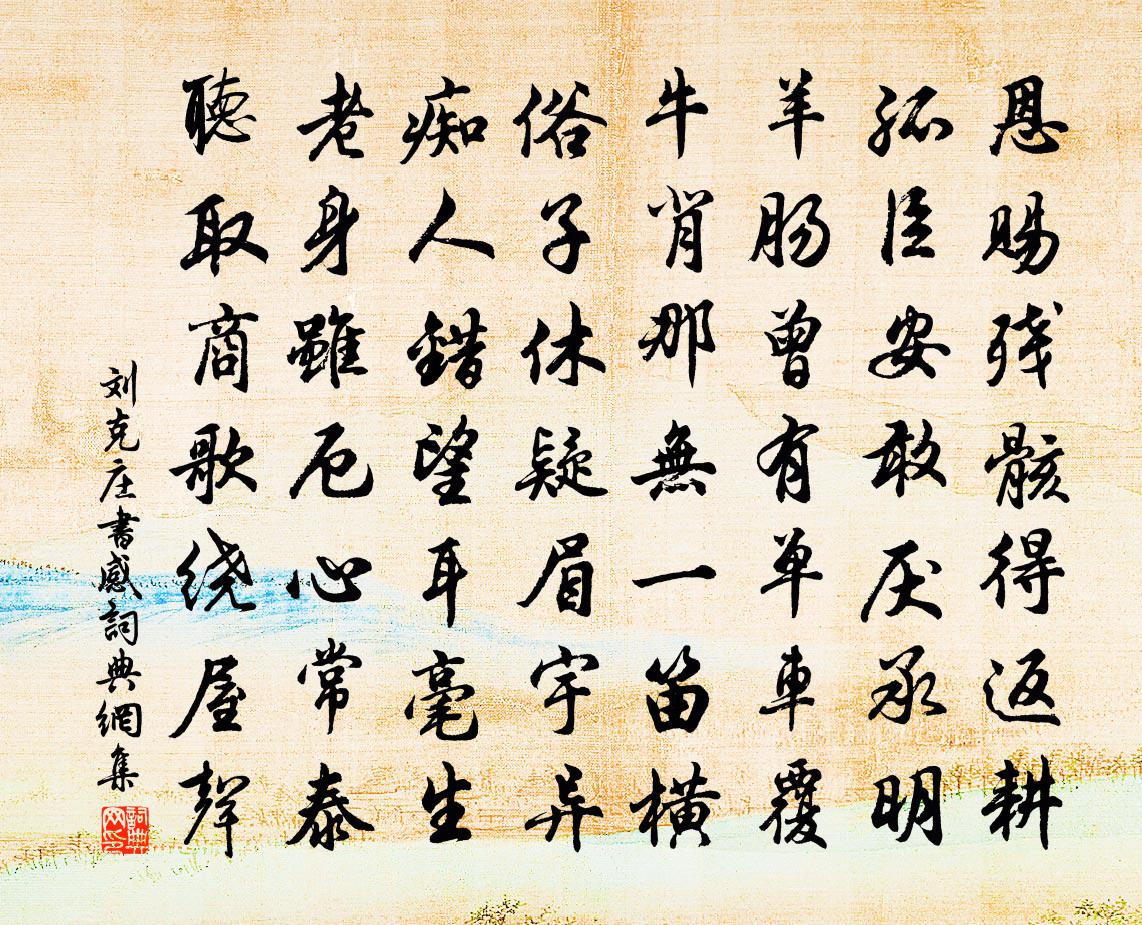 恩赐残骸得返耕
孤臣安敢厌承明
羊肠曾有单车覆
牛背那無一笛横
俗子休疑眉宇异
痴人错望耳毫生
老身雖厄心常泰
聽取商歌绕屋聲
刘克庄書感詞典網集
詞典网印